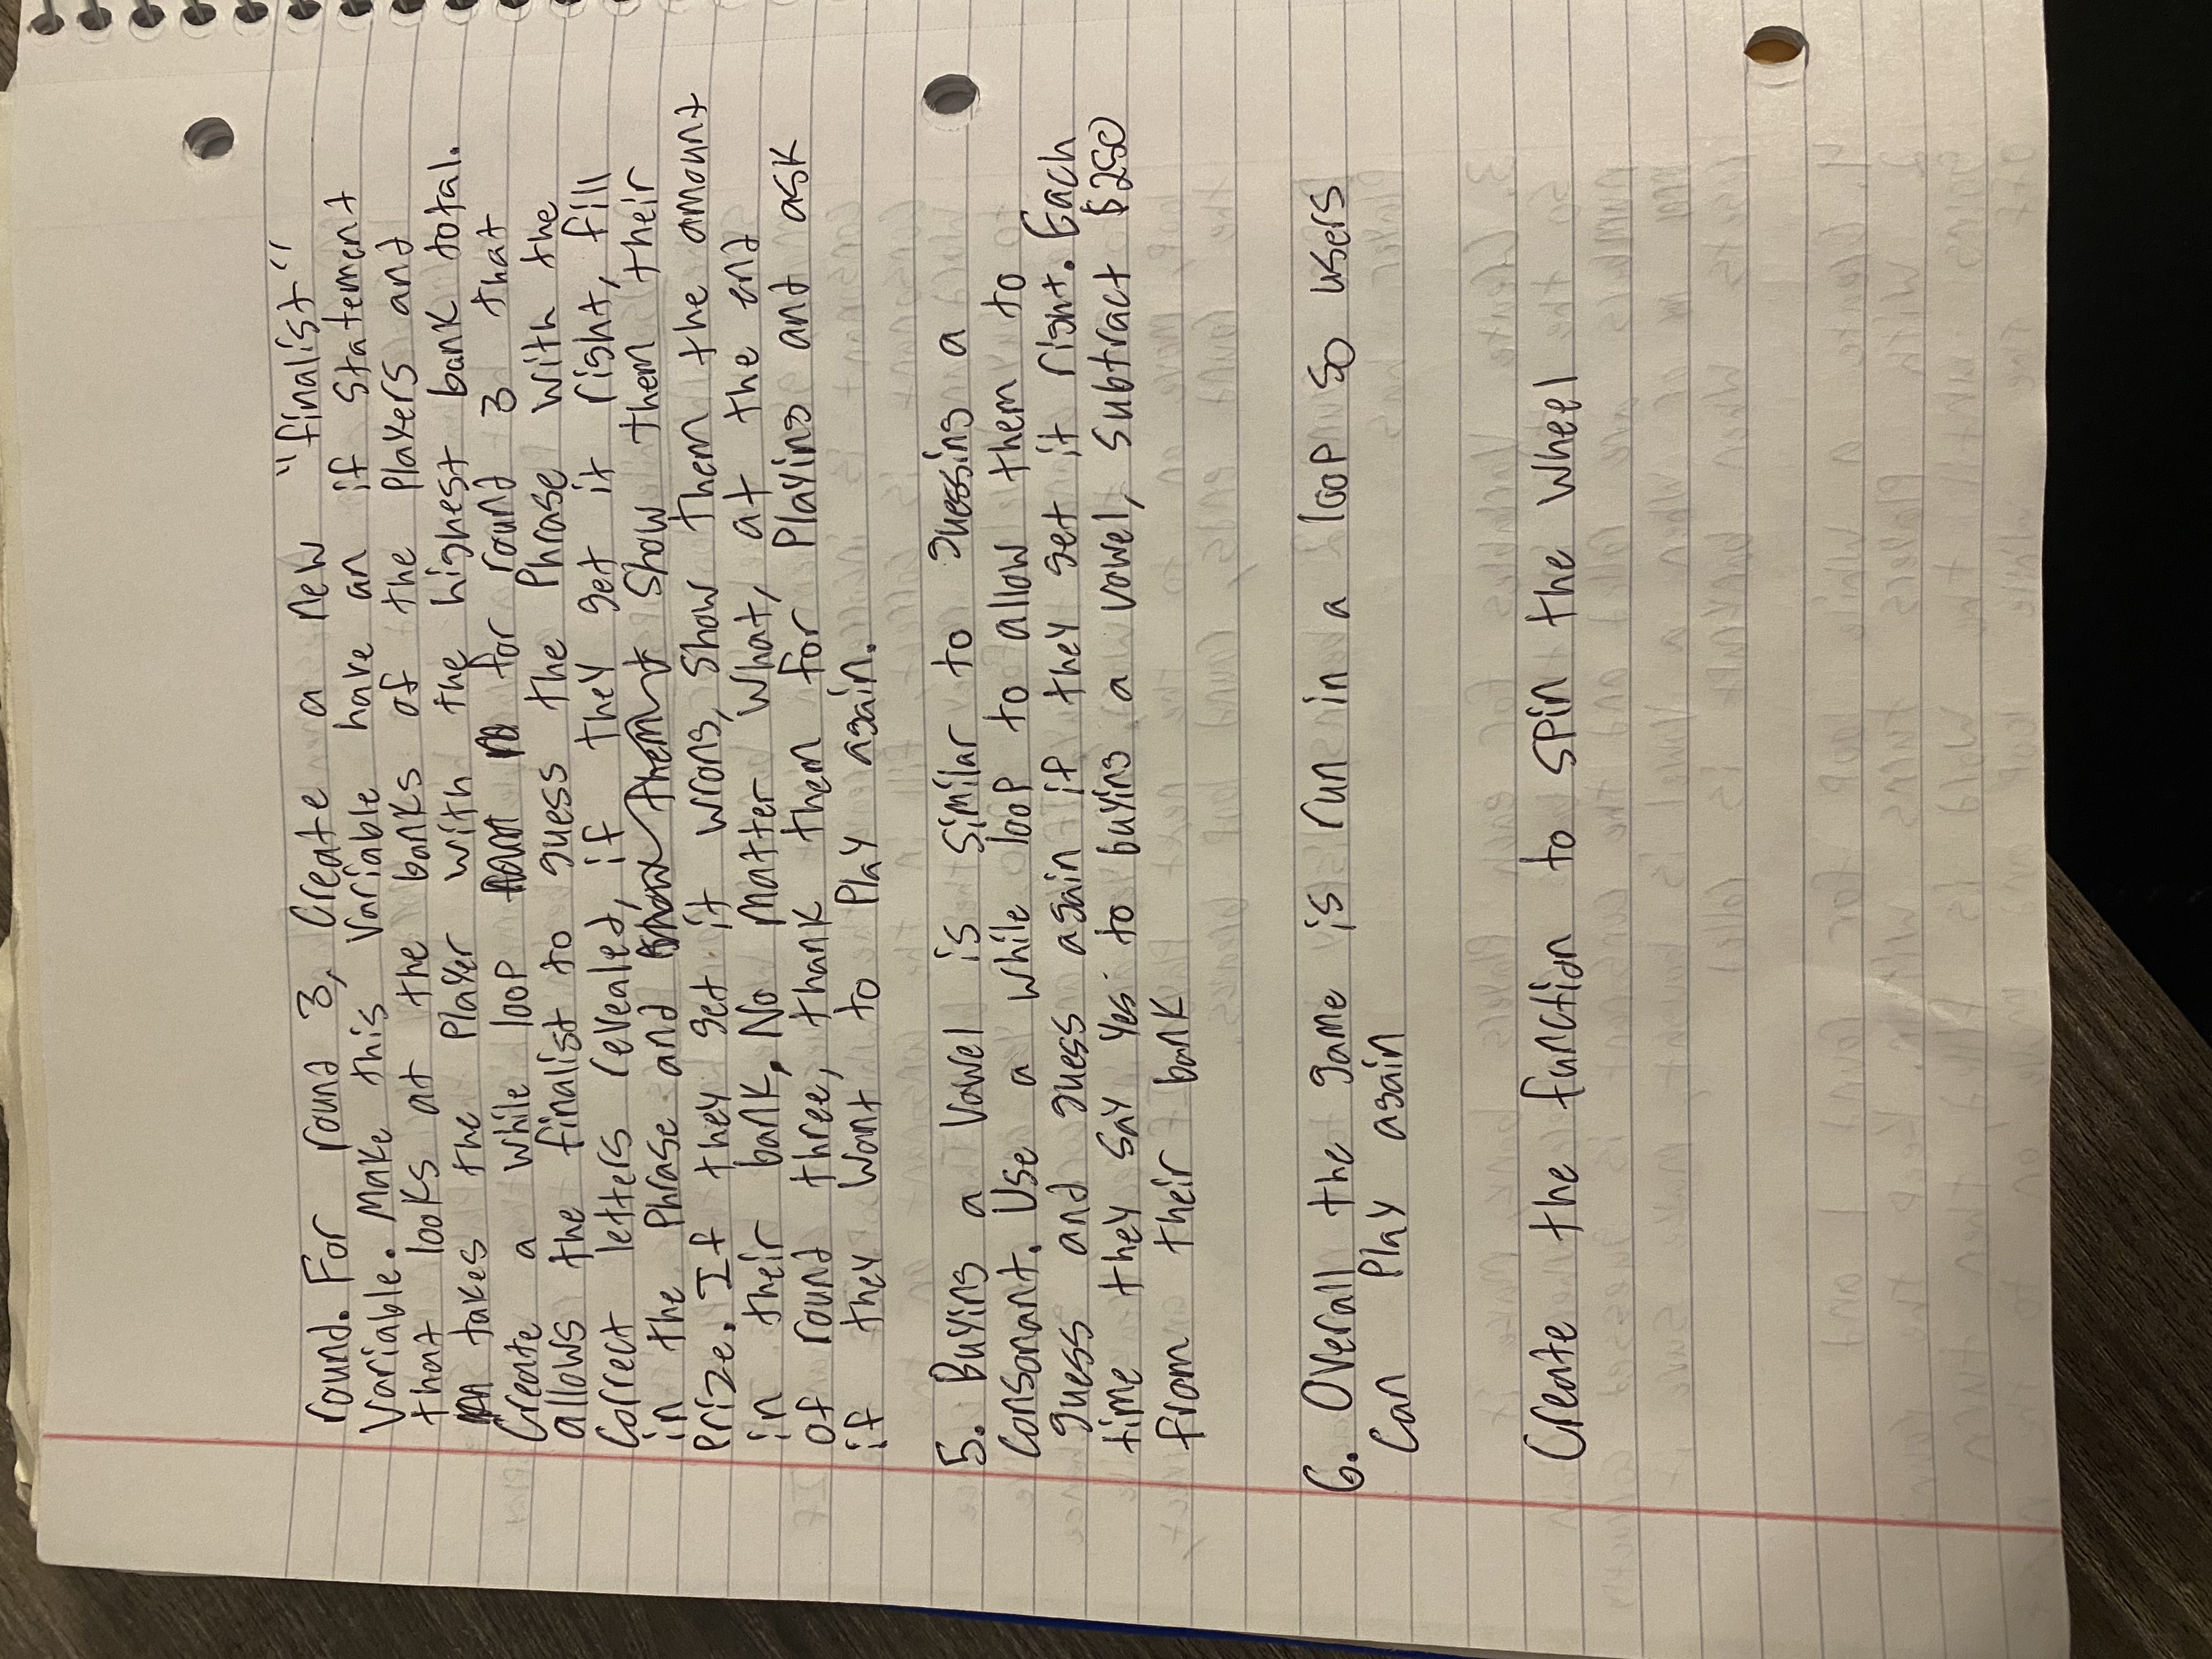 round. For round 3, Create a new "finalist"
Variable. Make this Variable have an if Statement
that looks at the banks of the Players and
takes the Player with the highest bank total.
Create a while loop for round 3 that
allows the finalist to guess the Phrase with the
Correct letters revealed, if they get it right, fill
in the Phrase and show them their
Prize. If they get it wrong, Show them the amount
in their bank. No matter what, at the end
of round three, thank them for Playing and ask
if they want to Play again.
5. Buying a Vowel is similar to guessing a
Consonant. Use a while loop to allow them to
guess and guess again if they get it right. Each
time they say yes to buying a vowel, subtract $250
from their bank
6. Overall the game is run in a loop so users
Can Play again
Create the function to spin the wheel